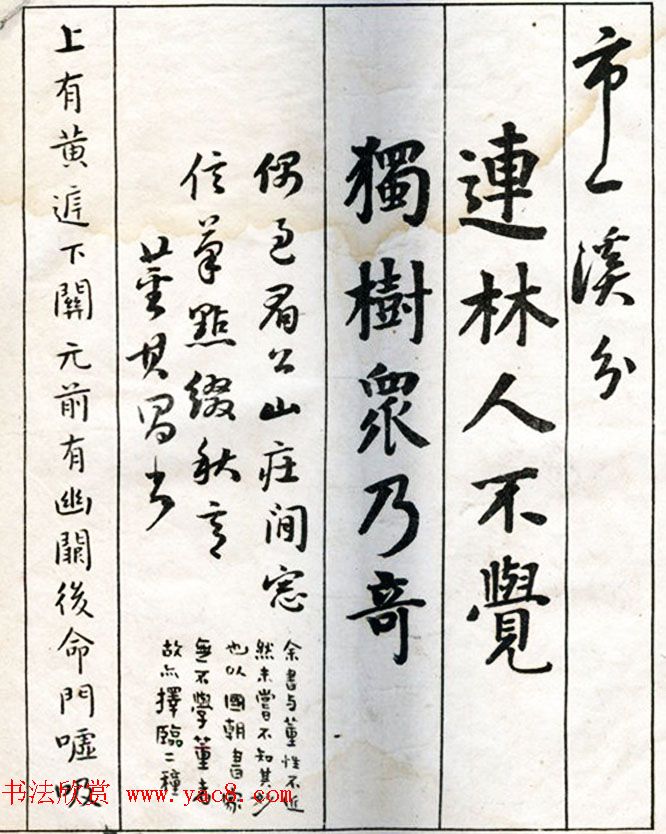 市一溪分
連林人不覺
獨樹眾乃奇
偶過眉公山庄閒窓
信筆點綴秋意
董其昌書
余書与董性不近
然未嘗不知其妙
也以國朝書家
無不學董者
故亦擇臨二種
上有黃庭下關元前有幽闕後命門噓吸
书法欣赏 www.yac8.com